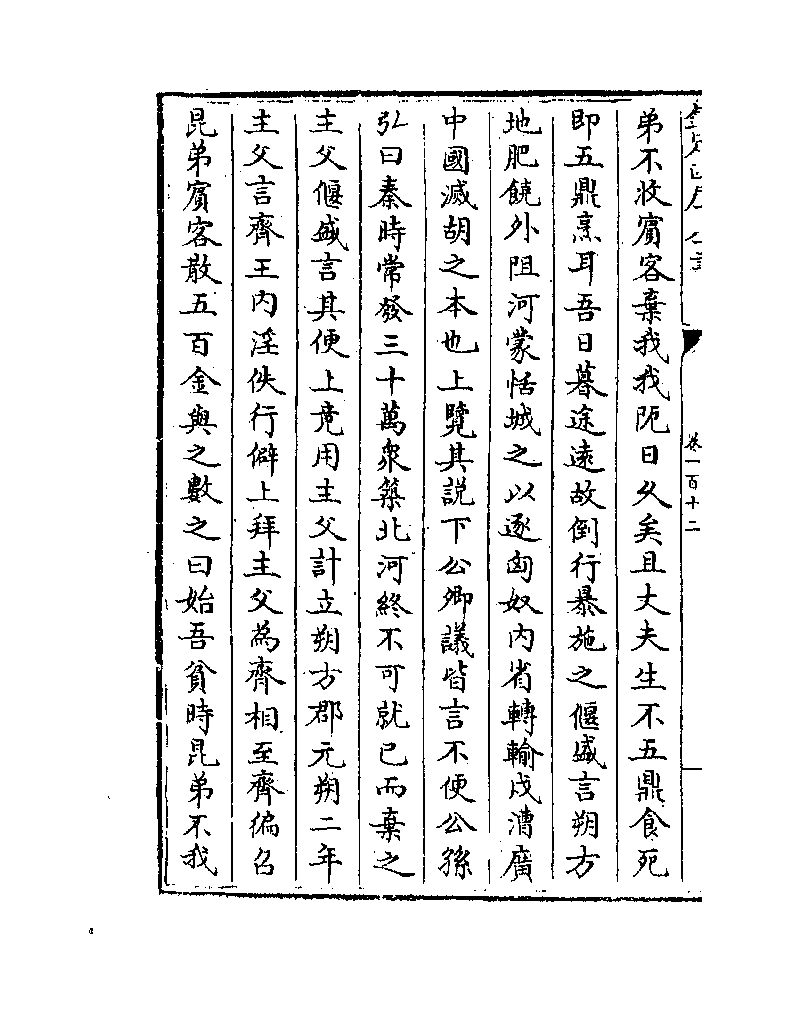 弟不收賓客棄我我阨日久矣且丈夫生不五鼎食死
即五鼎烹耳吾日暮途遠故倒行暴施之偃盛言朔方
地肥饒外阻河蒙恬城之以逐匈奴内省轉輸戍漕廣
中國滅胡之本也上覽其説下公卿議皆言不便公孫
弘曰秦時常發三十萬衆築北河終不可就已而棄之
主父偃盛言其便上竟用主父計立朔方郡元朔二年
主父言齊王内淫佚行僻上拜主父為齊相至齊徧召
昆弟賓客散五百金與之數之曰始吾貧時昆弟不我
卷一百十二